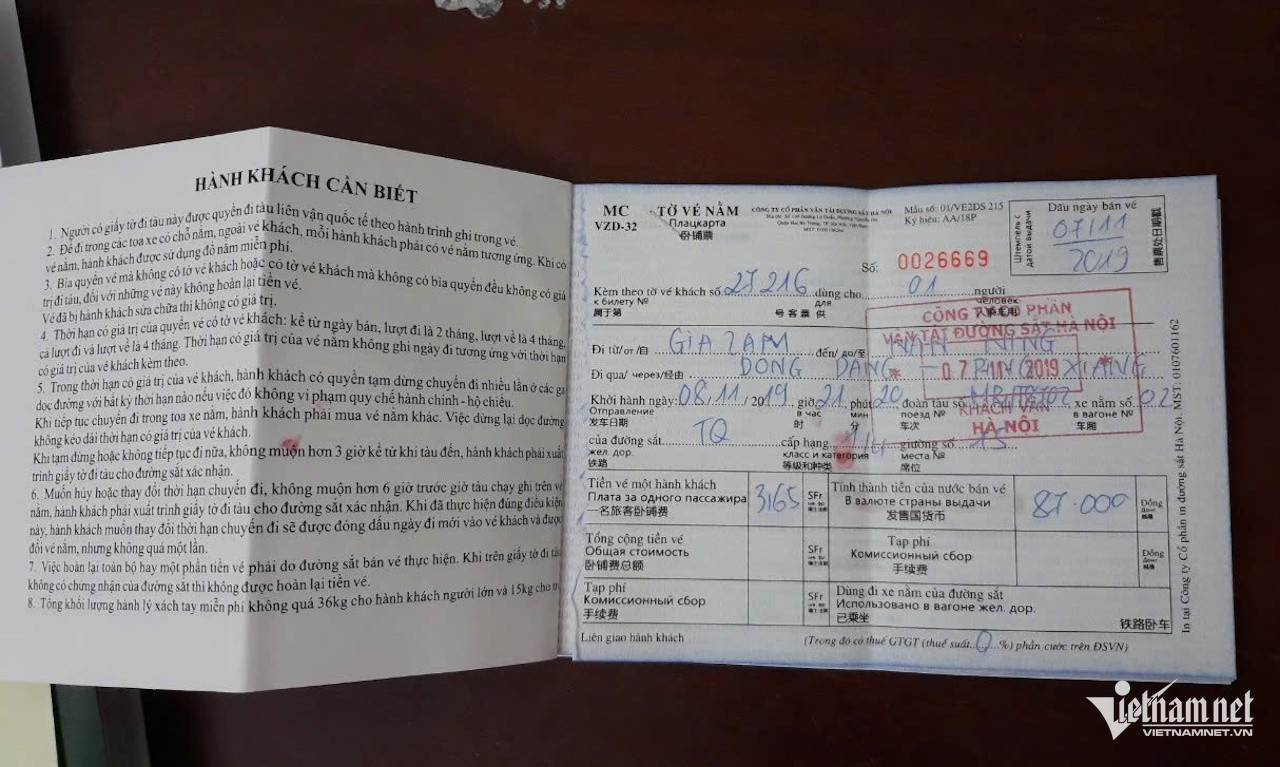 HÀNH KHÁCH CẦN BIẾT
1. Người có giấy tờ đi tàu này được quyền đi tàu liên vận quốc tế theo hành trình ghi trong vé.
2. Để đi trong các toa xe có chỗ nằm, ngoài vé khách, mỗi hành khách phải có vé nằm tương ứng. Khi có
vé nằm, hành khách được sử dụng đồ nằm miễn phí.
3. Bìa quyển vé mà không có tờ vé khách hoặc có tờ vé khách mà không có bìa quyển đều không có giá
trị đi tàu, đối với những vé này không hoàn lại tiền vé.
Vé đã bị hành khách sửa chữa thì không có giá trị.
4. Thời hạn có giá trị của quyển vé có tờ vé khách: kể từ ngày bán, lượt đi là 2 tháng, lượt về là 4 tháng,
cả lượt đi và lượt về là 4 tháng. Thời hạn có giá trị của vé nằm không ghi ngày đi tương ứng với thời hạn
có giá trị của vé khách kèm theo.
5. Trong thời hạn có giá trị của vé khách, hành khách có quyền tạm dừng chuyến đi nhiều lần ở các ga
dọc đường với bất kỳ thời hạn nào nếu việc đó không vi phạm quy chế hành chính - hộ chiếu.
Khi tiếp tục chuyến đi trong toa xe nằm, hành khách phải mua vé nằm khác. Việc dừng lại dọc đường
không kéo dài thời hạn có giá trị của vé khách.
Khi tạm dừng hoặc không tiếp tục đi nữa, không muộn hơn 3 giờ kể từ khi tàu đến, hành khách phải xuất
trình giấy tờ đi tàu cho đường sắt xác nhận.
6. Muốn hủy hoặc thay đổi thời hạn chuyến đi, không muộn hơn 6 giờ trước giờ tàu chạy ghi trên vé
nằm, hành khách phải xuất trình giấy tờ đi tàu cho đường sắt xác nhận. Khi đã thực hiện đúng điều kiện
này, hành khách muốn thay đổi thời hạn chuyến đi sẽ được đóng dấu ngày đi mới vào vé khách và được
đổi vé nằm, nhưng không quá một lần.
7. Việc hoàn lại toàn bộ hay một phần tiền vé phải do đường sắt bán vé thực hiện. Khi trên giấy tờ đi tàu
không có chứng nhận của đường sắt thì không được hoàn lại tiền vé.
8. Tổng khối lượng hành lý xách tay miễn phí không quá 36kg cho hành khách người lớn và 15kg cho
MC TỜ VÉ NẰM CÔNG TY CỔ PHẦN VẬN TẢI ĐƯỜNG SẮT HÀ NỘI Mẫu số: 01/VE2DS 215 Dấu ngày bán vé
VZD-32 Плацкарта Ký hiệu: AA/18P
卧铺票
Штемпель с датой выдачи 07/11 2019 售票处日期戳
Số: 0026669
Kèm theo tờ vé khách số 27216 dùng cho 01 người
к билету № для человек
属于第 号客票 供
CÔNG TY CỔ PHẦN
VẬN TẢI ĐƯỜNG SẮT HÀ NỘI
Đi từ/от/自 GIA LAM đến/ до/至 NAN NING
Đi qua/ через/经由 DONG DANG PING XIANG
* 07 -11- 2019 *
Khởi hành ngày: 08.11 / 2019 giờ 21 phút 20 đoàn tàu số xe nằm số 02
Отправление в час мин поезд № в вагоне №
发车日期 时 分 车次 车厢
KHÁCH VẬN
HÀ NỘI
của đường sắt TQ cấp hạng giường số 15
жел дор. класс и категория места №
铁路 等级和种类 席位
Tiền vé một hành khách 3165 SFr Tính thành tiền của nước bán vé 87.000 Đồng
Плата за одного пассажира В валюте страны выдачи
一名旅客卧铺费 发售国货币
Tổng cộng tiền vé SFr Tạp phí Đồng
Общая стоимость Комиссионный сбор
卧铺费总额 手续费
Tạp phí SFr Dùng đi xe nằm của đường sắt
Комиссионный сбор Использовано в вагоне жел. дор.
手续费 已乘坐 铁路卧车
Liên giao hành khách (Trong đó có thuế GTGT (thuế suất..0...%) phần cước trên ĐSVN)
In tại Công ty Cổ phần in đường sắt Hà Nội. MST: 0107601162
Vietnamnet
VIETNAMNET.VN